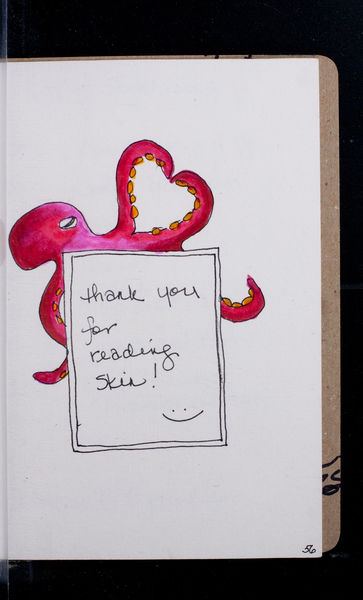 thank you
for
reading
skin!
56